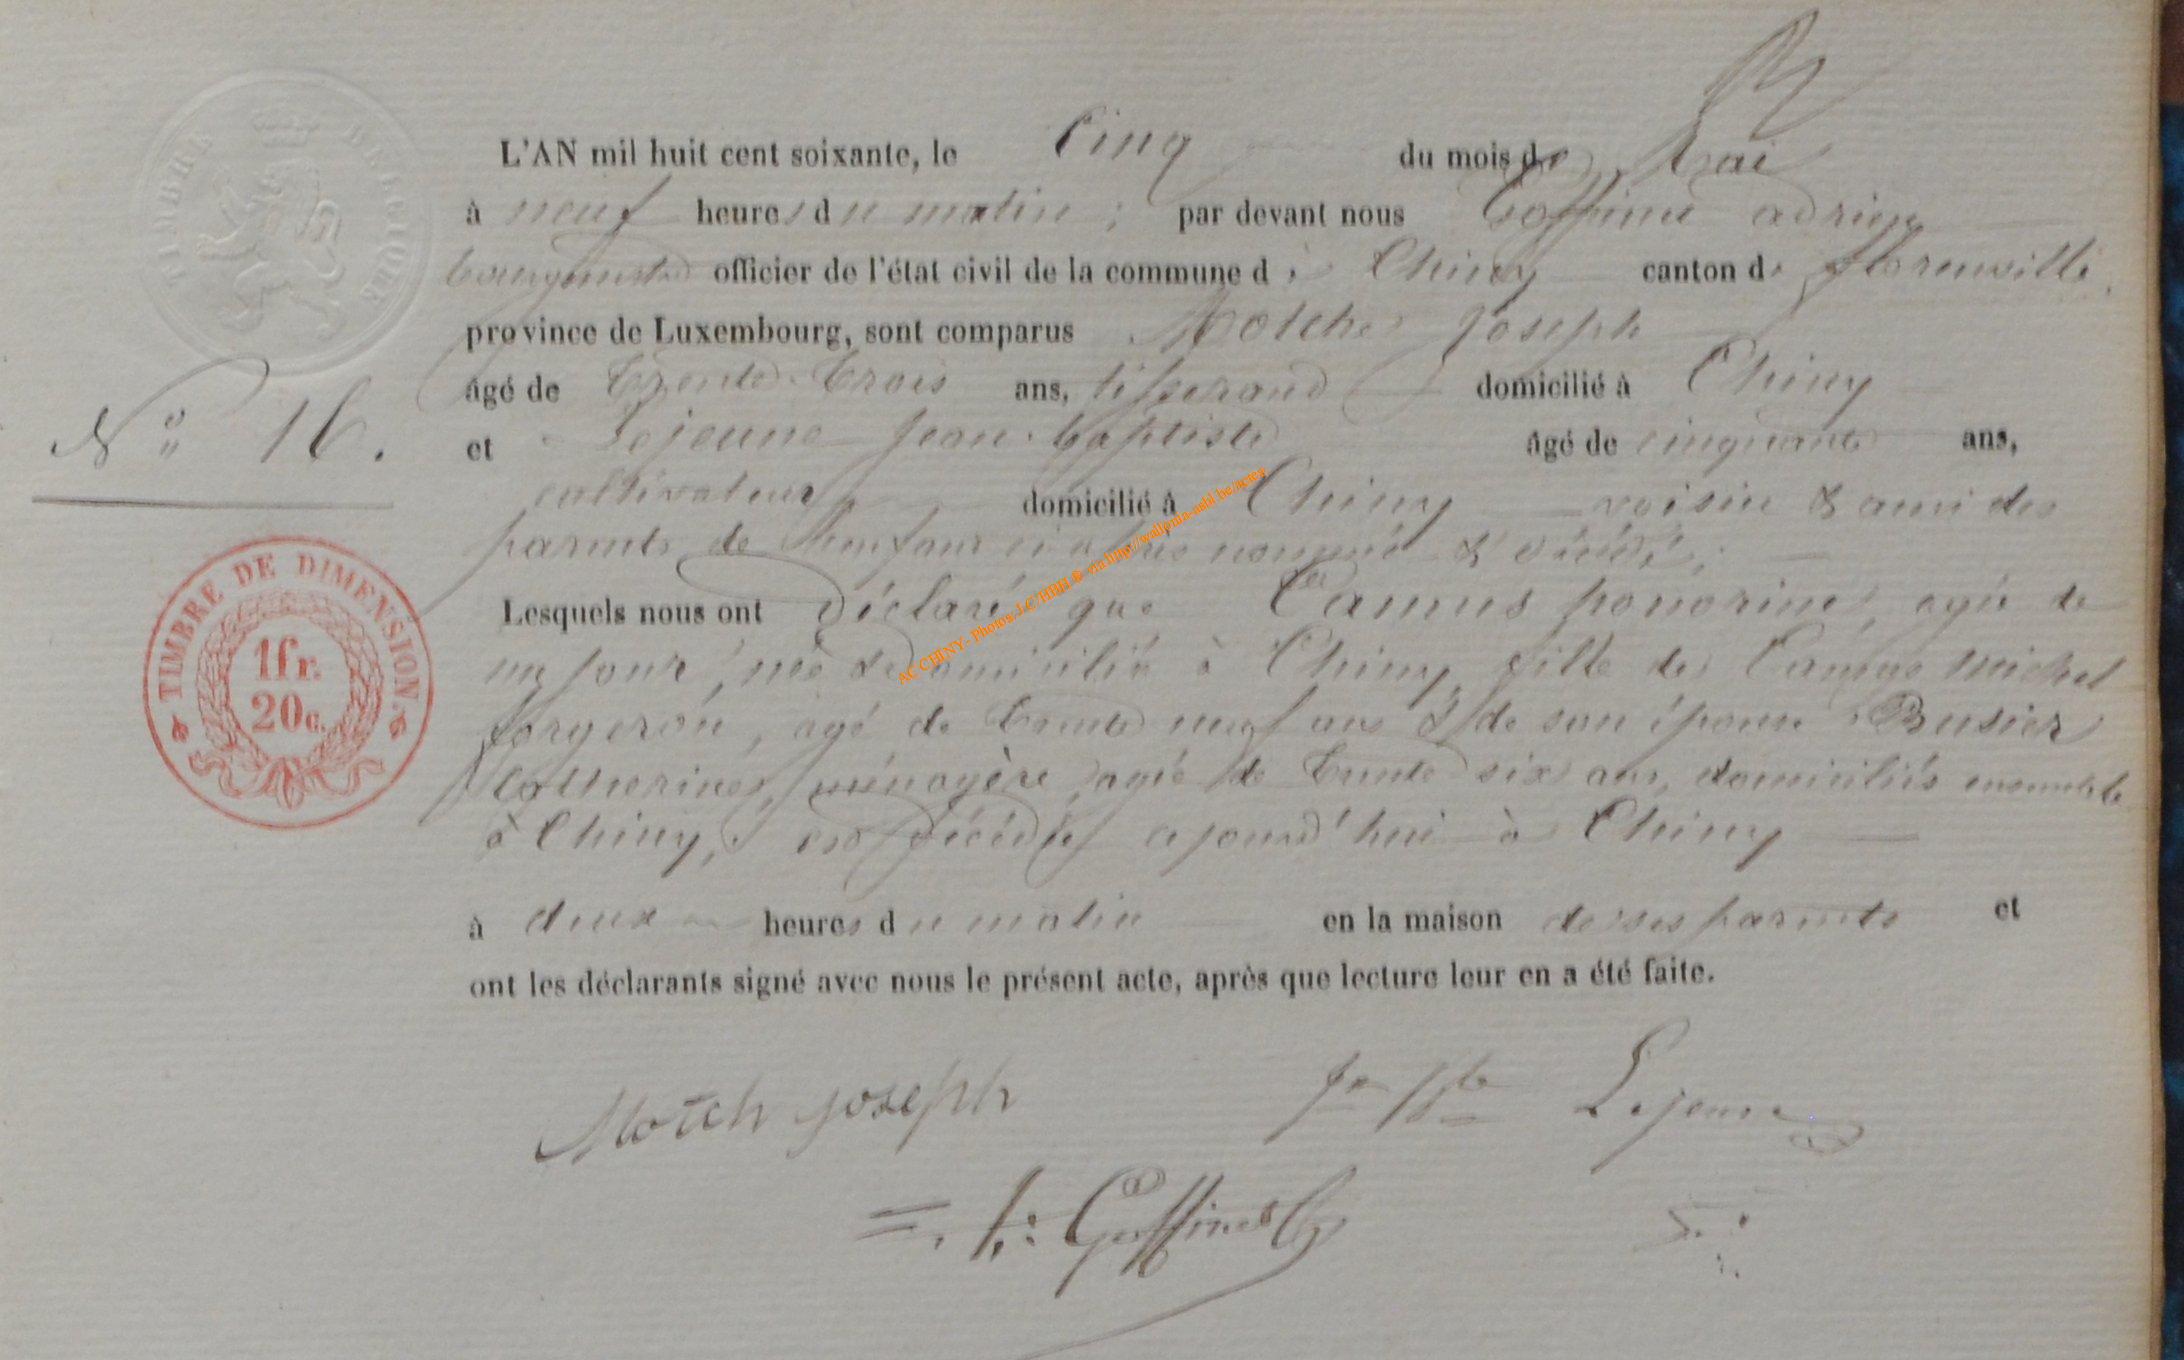 L'AN mil huit cent soixante, le Cinq du mois de Mai
à neuf heures du matin ; par devant nous Goffinet adrien
bourgmestre officier de l'état civil de la commune de Chiny canton de florenville,
province de Luxembourg, sont comparus Motche Joseph
âgé de trente-trois ans, tisserand domicilié à Chiny
N° 16.
et Lejeune Jean-baptiste âgé de cinquante ans,
cultivateur domicilié à Chiny voisin & ami des
parents de l'enfant ci après nommé & décédé;
Lesquels nous ont déclaré que Camus honorine, agée de
un jour, née & domiciliée à Chiny, fille de Camus Michel
forgeron, agé de trente neuf ans & de son épouse Busier
Catherine, ménagère, agée de trente six ans, domiciliés ensemble
à Chiny, est décédée ajourd'hui à Chiny
à deux heures du matin en la maison de ses parents et
ont les déclarants signé avec nous le présent acte, après que lecture leur en a été faite.
Motch joseph
Jn Bte Lejeune
A: Goffinet
TIMBRE BELGIQUE
TIMBRE DE DIMENSION.
1fr.
20c.
AC CHINY- Photos J.C/HBH ® via http://wallonia-asbl.be/actes